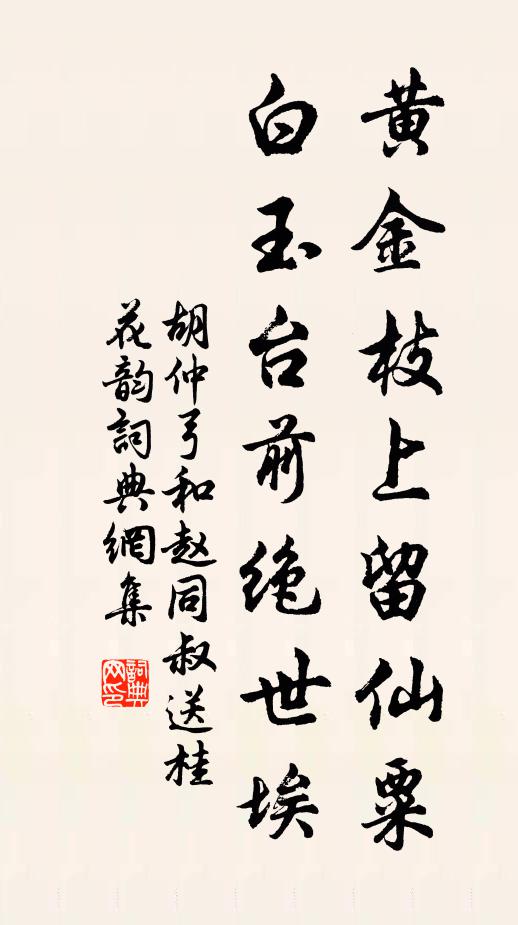 黄金枝上留仙粟
白玉台前绝世埃
胡仲弓和赵同叔送桂
花韵詞典網集
詞典網印